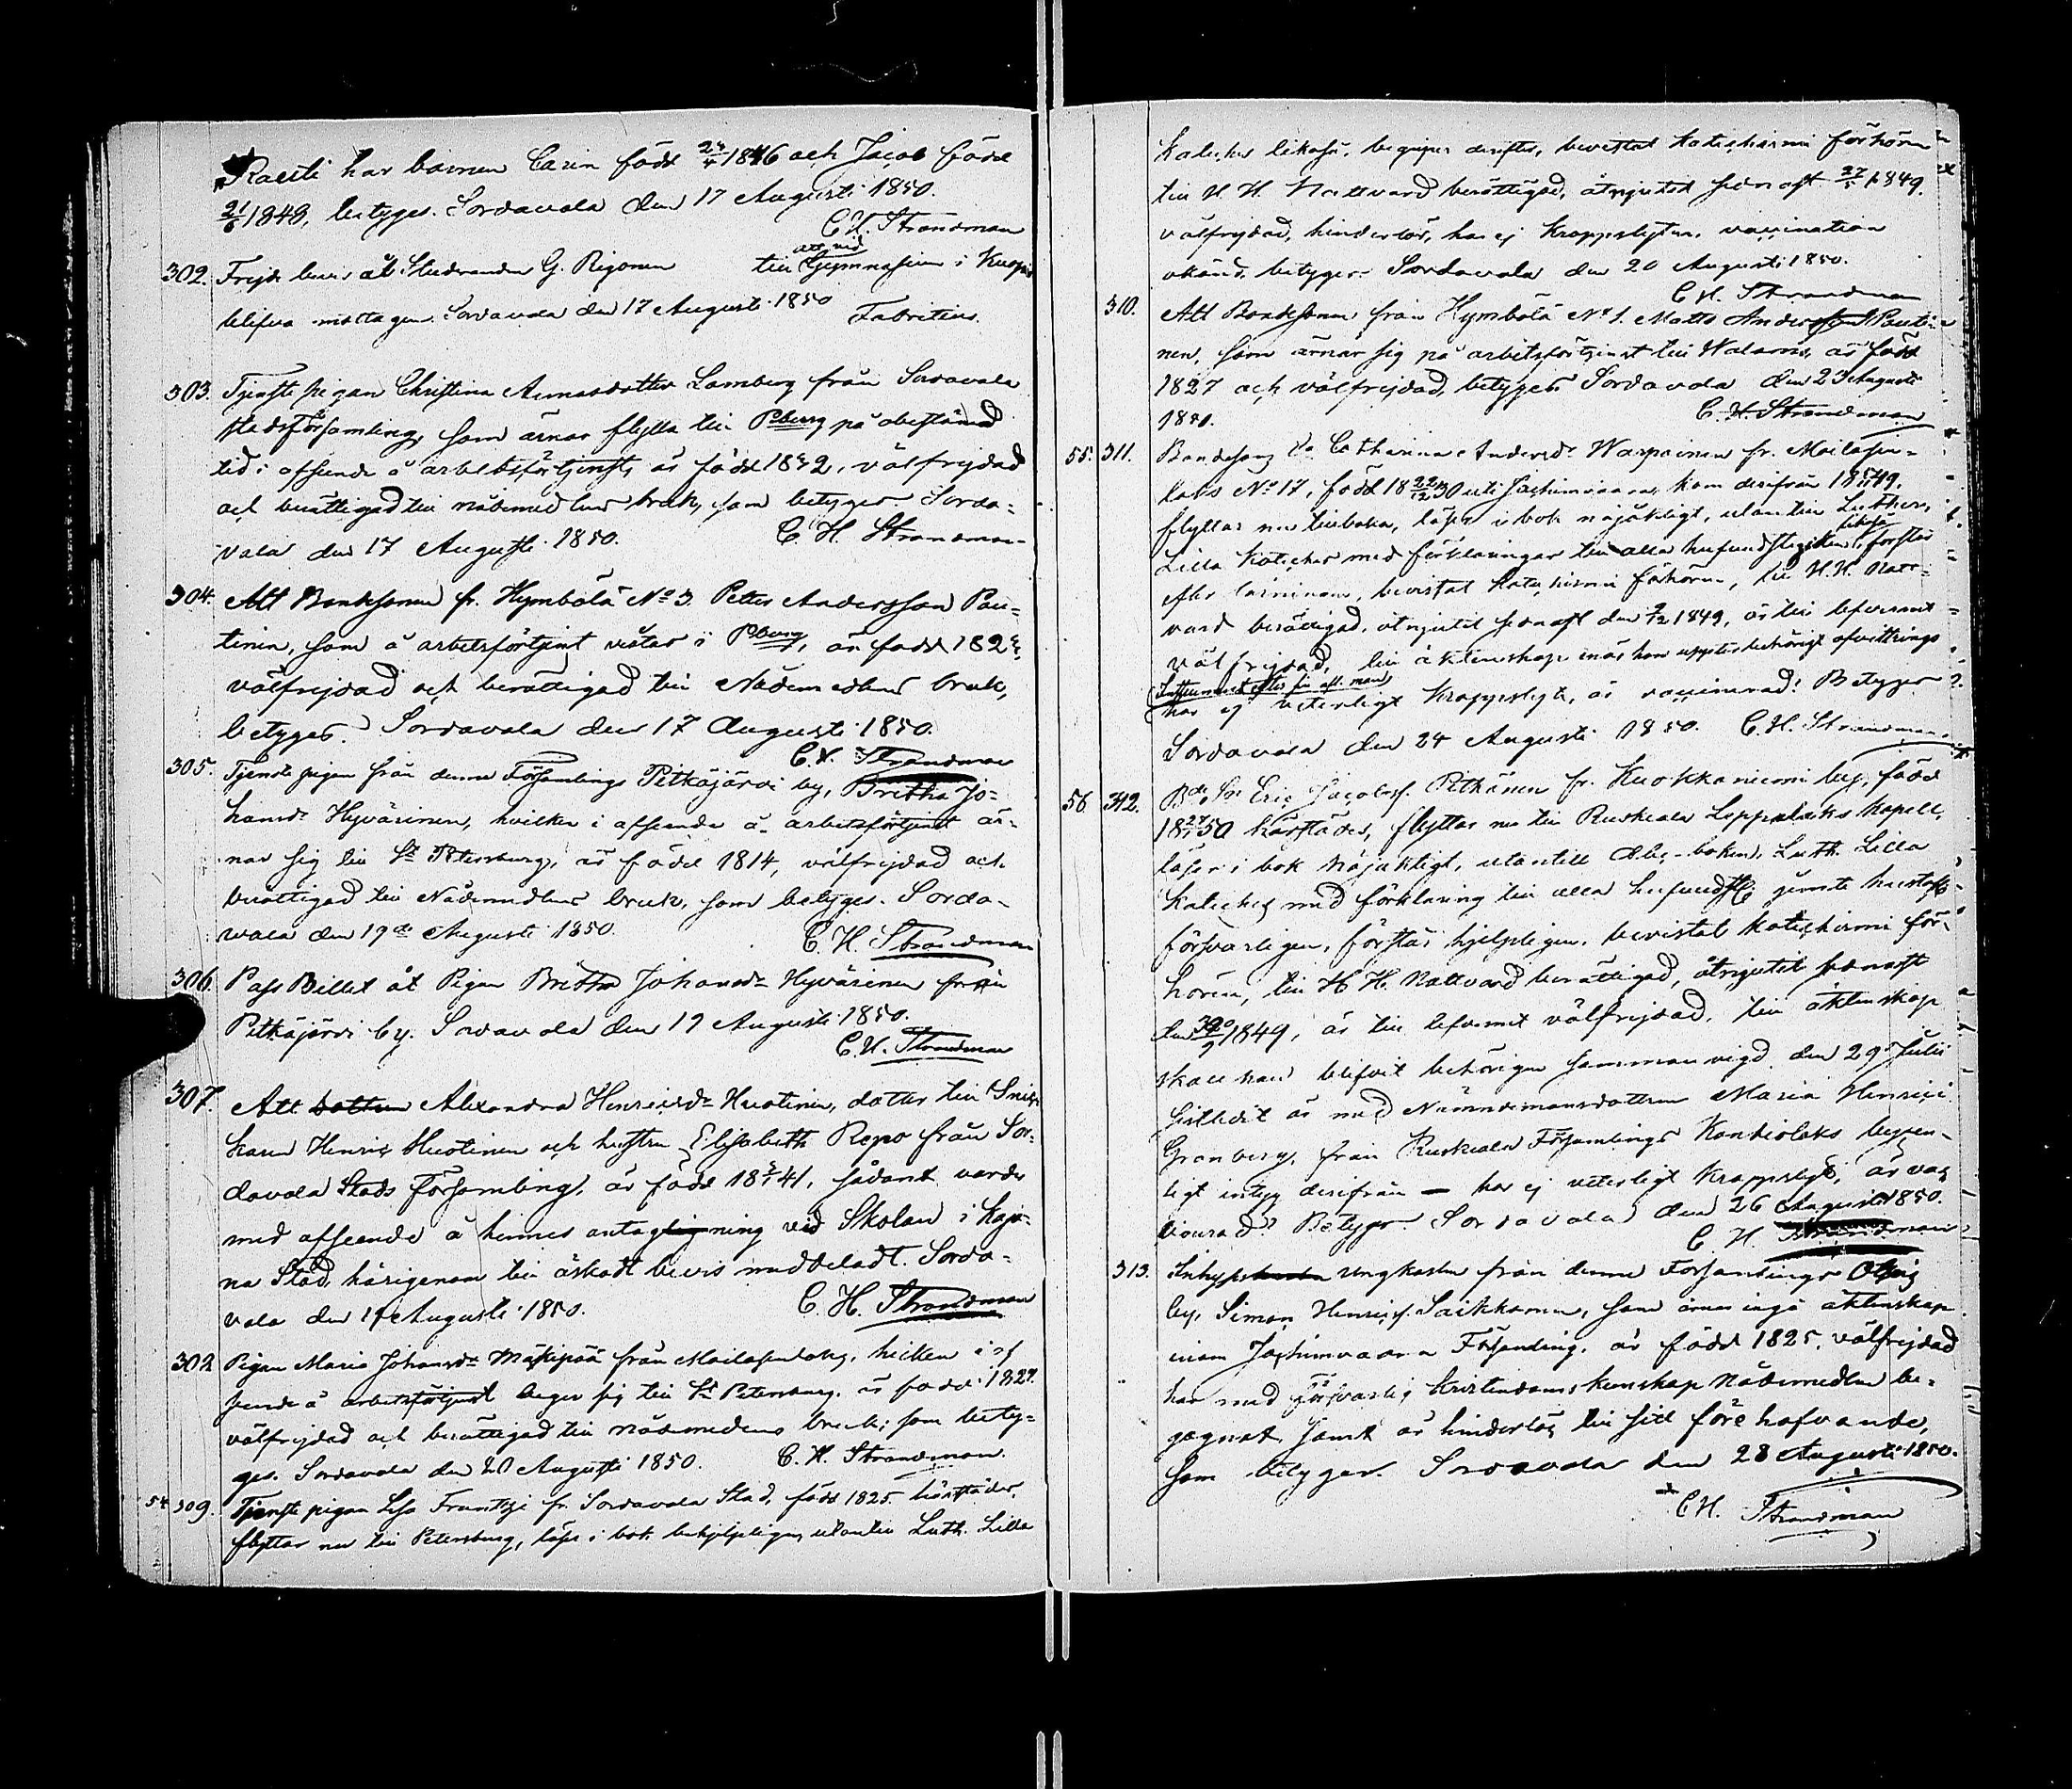 Raesti har barnen Carin född 24/4 1846 och Jacob född
21/6 1848, betyges. Sordavala den 17 Augusti 1850.
C. H. Strandman
302. Frejde bevis åt Studeranden G. Rigonen att vid till Gymnasium i Kuopio
blifva mottagen. Sordavala den 17 Augusti 1850
Fabritius.
303. Tjenste pigan Christina Annasdotter Lamberg från Sordavala
stadsförsamling, som ärnar flytta till Pburg på obestämd
tid i afseende å arbetsförtjenst, är född 1832, välfrejdad
och berättigad till nådemedlens bruk, som betyges. Sorda-
vala den 17 Augusti 1850. C. H. Strandman
304. Att Bondsonen fr. Hymbölä No 3. Petter Andersson Pau-
tinen, som å arbetsförtjenst vistas i Pburg, är född 182
välfrejdad och berättigad till Nådemedlens bruk,
betyges. Sordavala den 17 Augusti 1850.
C. H. Strandman
305. Tjenste pigan från denne Församlings Pitkäjärvi by, Britha Jo-
hansdr Hyvärinen, hvilken i afseende å arbetsförtjenst är-
nar sig till St Petersburg, är född 1814, välfrejdad och
berättigad till Nådemedlens bruk, som betyges. Sorda-
vala den 19de Augusti 1850. C. H. Strandman
306. Pass Billet åt Pigan Britha Johansdr Hyvärinen från
Pitkäjärvi by. Sordavala den 19 Augusti 1850.
C. H. Strandman
307. Att dottren Alexandra Henricsdr Huotinen, dotter till Snick-
karen Henric Huotinen och hustru Elisabeth Repo från Sor-
davala Stads Församling, är född 18 41, sådant varder
med afseende å hennes antagning vid Skolan i Kaja-
na Stad härigenom till äskadt bevis meddeladt. Sorda-
vala den 19 Augusti 1850. C. H. Strandman
302 Pigan Maria Johansdr Mäkipää från Mailasenlaks, hvilken i af
seende å arbetsförtjenst beger sig till St Petersburg, är född 1827.
välfrejdad och berättigad till nådemedlens bruk; som bety-
ges. Sordavala den 20 Augusti 1850. C. H. Strandman.
54 309. Tjenste pigan Lisa Frantsi fr. Sordavala Stad, född 1825 härstädes,
flyttar nu till Petersburg, läser i bok behjelpligen, utantill Luth. Lilla
Kateches likaså, begriper derefter, bevistat Katechismi förhören
till H. H. Nattvard berättigad, åtnjutit sednast 27/5 1849.
välfrejdad, hinderlös, har ej Kroppslyten, vaccination
okänd, betyges. Sordavala den 20 Augusti 1850.
C. H. Strandman
310. Att Bondsonen från Hymbölä No 1. Matts Andersson Pauti-
nen, som ärnar sig på arbetsförtjenst till Walamo, är född
1827 och välfrejdad, betyges Sordavala den 23 Augusti
1850. C. H. Strandman
55. 311. Catharina Andersdr Warpainen fr. Mailasen-
laks No 17, född 18 22/12 30 uti Jachimvaara, kom derifrån 18 49,
flyttar nu tillbaka, läser i bok nöjaktigt, utantill Lutheri
Lilla Kateches med förklaringar till alla hufvudstycken likaså, förstår
efter läsningen, bevistat Katechismi förhören, till H. H. Natt-
vard berättigad, åtnjutit sednast den 2/12 1849, är till lefvernet
välfrejdad, till äktenskap innan hon uppter behörigt afvittrings
Instrument efter sin afl. man,
har ej veterligt Kroppslyte, är vaccinerad: Betyges
Sordavala den 24 Augusti 1850. C. H. Strandman
56 312. Eric Jacobss. Pitkänen fr. Kuokkaniemi by, född
18 27 50 härstädes, flyttar nu till Ruskeala Leppälaks Kapell,
läser i bok nöjaktigt, utantill abc-boken, Luth. Lilla
Kateches med förklaring till alla hufvudst. jemte hustafl.
försvarligen, förstår hjelpligen. bevistat Katechismi för-
hören, till H. H. Nattvard berättigad, åtnjutit sednast
den 30/9 1849, är till lefvernet välfrejdad, till äktenskap
skall han blifvit behörigen sammanvigd den 29 Julii
sistledit år med Nämndemansdottren Maria Henrici
Granberg, från Ruskeala Församlings Kontiolaks by, en-
ligt intyg derifrån — har ej veterligt Kroppslyte, är vac-
cinerad? Betyges Sordavala den 26 Augusti 1850.
C. H. Strandman
313. Inhyses Ungkarlen från denne Församlings Otsois
by, Simon Henrics. Saikkonen, som ärnar ingå äktenskap
inom Jachimvaara Församling, är född 1825, välfrejdad
har med försvarlig Kristendoms kunskap Nådemedlen be-
gagnat, samt är hinderlös till sitt före hafvande,
som betyges. Sordavala den 28 Augusti 1850.
C. H. Strandman